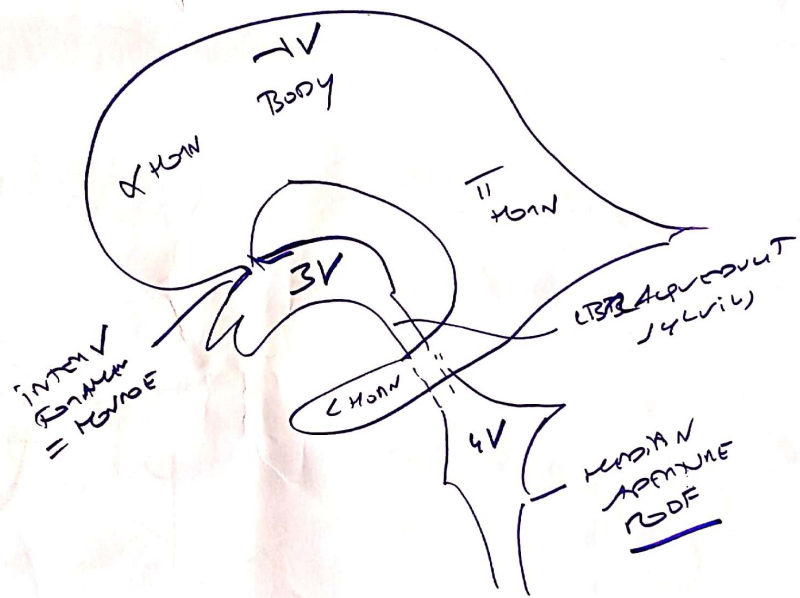 BODY
HORN
HORN
3V
AQUEDUCT
SYLVIUS
INTER V
FORAMEN
= MONROE
HORN
4V
MEDIAN
APERTURE
ROOF